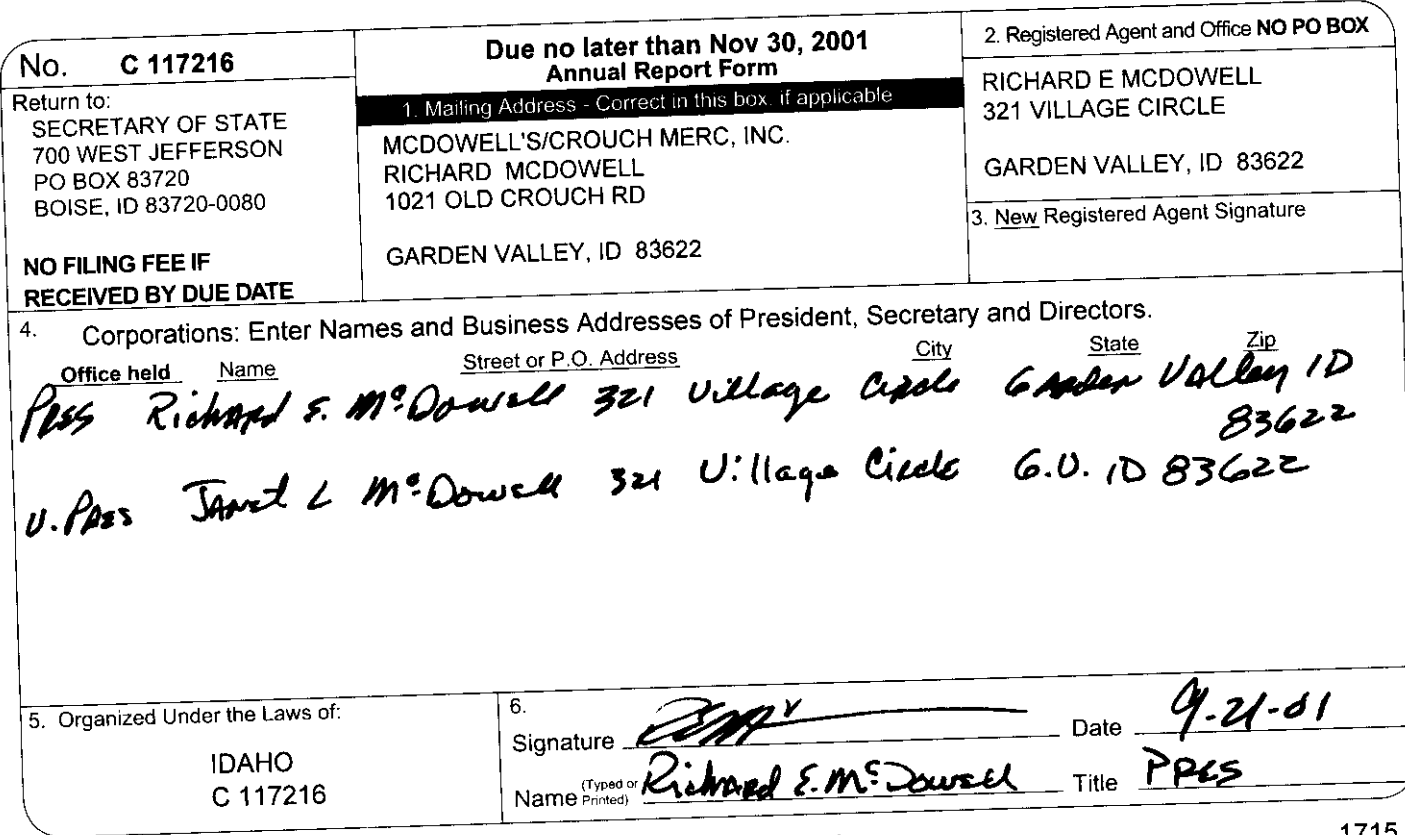 No. C 117216
Return to:
SECRETARY OF STATE
700 WEST JEFFERSON
PO BOX 83720
BOISE, ID 83720-0080
NO FILING FEE IF
RECEIVED BY DUE DATE
Due no later than Nov 30, 2001
Annual Report Form
1. Mailing Address - Correct in this box, if applicable
MCDOWELL'S/CROUCH MERC, INC.
RICHARD MCDOWELL
1021 OLD CROUCH RD
GARDEN VALLEY, ID 83622
2. Registered Agent and Office NO PO BOX
RICHARD E MCDOWELL
321 VILLAGE CIRCLE
GARDEN VALLEY, ID 83622
3. New Registered Agent Signature
4. Corporations: Enter Names and Business Addresses of President, Secretary and Directors.
Office held Name Street or P.O. Address City State Zip
PRES Richard E. McDowell 321 Village Circle Garden Valley ID
83622
V. PRES Janet L McDowell 321 Village Circle G.V. ID 83622
5. Organized Under the Laws of:
IDAHO
C 117216
6.
Signature Date 9-21-01
Name (Typed or Printed) Richard E. McDowell Title PRES
1715